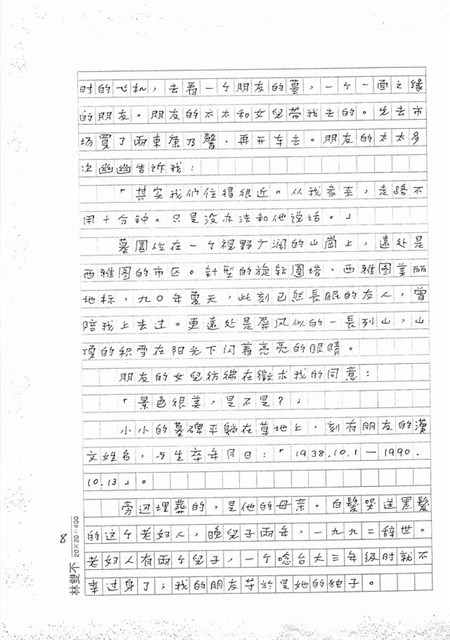 时的飞机，去看一个朋友的墓，一个一面之缘
的朋友。朋友的太太和女兒帶我去的。先去市
场買了兩束康乃馨，再开车去。朋友的太太多
次幽幽告訴我：
「其实我们住得很近。从我家来，走路不
用十分钟。只是没办法和他说话。」
墓園位在一个視野广阔的山崗上，遠处是
西雅图的市区。針型的旋转圓塔，西雅图美丽
地标，九〇年夏天，此刻已然長眠的友人，曾
陪我上去过。更遠处是屏风似的一長列山，山
頂的积雪在阳光下闪着亮亮的眼睛。
朋友的女兒彷彿在徵求我的同意：
「景色很美，是不是？」
小小的墓碑平躺在草地上，刻有朋友的漢
文姓名，与生卒年月日：「1938.10.1—1990.
10.13」。
旁边埋葬的，是他的母亲。白髮哭送黑髮
的这个老妇人，晚兒子兩年，一九九二辞世。
老妇人有兩个兒子，一个唸台大三年级时就不
幸过身了；我的朋友等於是她的独子。
8
林雙不 20×20=400